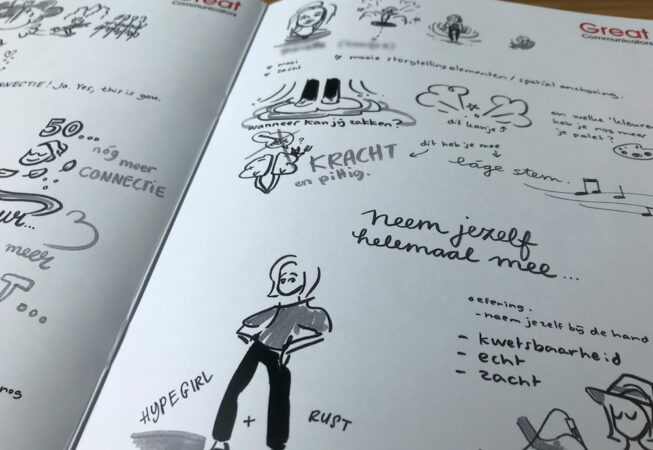 Great
Communicators
CONNECTIE! Ja. Yes, this is you.
50...
nóg meer
CONNECTIE
meer
T...
Great
Communicators
mooi
zacht
mooie storytellingelementen / spatial anchoring.
wanneer kan jij zakken?
dit kan je?
en welke 'kleuren'
heb je nog meer
je palet?
KRACHT
en pittig.
dit heb je mee
láge stem.
neem jezelf
helemaal mee...
oefening.
- neem jezelf bij de hand
- kwetsbaarheid
- echt
- zacht
HYPEGIRL
+
RUST